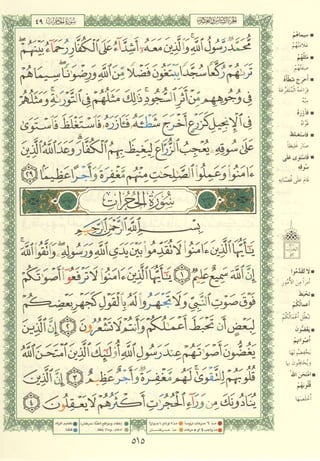 الجزء السادس والعشرون
سورة الحجرات ٤٩
مُّحَمَّدٌ رَّسُولُ ٱللَّهِ وَٱلَّذِينَ مَعَهُۥٓ أَشِدَّآءُ عَلَى ٱلْكُفَّارِ رُحَمَآءُ بَيْنَهُمْ
تَرَىٰهُمْ رُكَّعًا سُجَّدًا يَبْتَغُونَ فَضْلًا مِّنَ ٱللَّهِ وَرِضْوَٰنًا سِيمَاهُمْ
فِى وُجُوهِهِم مِّنْ أَثَرِ ٱلسُّجُودِ ذَٰلِكَ مَثَلُهُمْ فِى ٱلتَّوْرَىٰةِ وَمَثَلُهُمْ
فِى ٱلْإِنجِيلِ كَزَرْعٍ أَخْرَجَ شَطْـَٔهُۥ فَـَٔازَرَهُۥ فَٱسْتَغْلَظَ فَٱسْتَوَىٰ
عَلَىٰ سُوقِهِۦ يُعْجِبُ ٱلزُّرَّاعَ لِيَغِيظَ بِهِمُ ٱلْكُفَّارَ وَعَدَ ٱللَّهُ ٱلَّذِينَ
ءَامَنُوا۟ وَعَمِلُوا۟ ٱلصَّٰلِحَٰتِ مِنْهُم مَّغْفِرَةً وَأَجْرًا عَظِيمًۢا ٢٩
سُورَةُ الحُجُرَاتِ
بِسْمِ ٱللَّهِ ٱلرَّحْمَٰنِ ٱلرَّحِيمِ
يَٰٓأَيُّهَا ٱلَّذِينَ ءَامَنُوا۟ لَا تُقَدِّمُوا۟ بَيْنَ يَدَىِ ٱللَّهِ وَرَسُولِهِۦ وَٱتَّقُوا۟ ٱللَّهَ
إِنَّ ٱللَّهَ سَمِيعٌ عَلِيمٌ ١ يَٰٓأَيُّهَا ٱلَّذِينَ ءَامَنُوا۟ لَا تَرْفَعُوٓا۟ أَصْوَٰتَكُمْ
فَوْقَ صَوْتِ ٱلنَّبِىِّ وَلَا تَجْهَرُوا۟ لَهُۥ بِٱلْقَوْلِ كَجَهْرِ بَعْضِكُمْ
لِبَعْضٍ أَن تَحْبَطَ أَعْمَٰلُكُمْ وَأَنتُمْ لَا تَشْعُرُونَ ٢ إِنَّ ٱلَّذِينَ
يَغُضُّونَ أَصْوَٰتَهُمْ عِندَ رَسُولِ ٱللَّهِ أُو۟لَٰٓئِكَ ٱلَّذِينَ ٱمْتَحَنَ ٱللَّهُ
قُلُوبَهُمْ لِلتَّقْوَىٰ لَهُم مَّغْفِرَةٌ وَأَجْرٌ عَظِيمٌ ٣ إِنَّ ٱلَّذِينَ
يُنَادُونَكَ مِن وَرَآءِ ٱلْحُجُرَٰتِ أَكْثَرُهُمْ لَا يَعْقِلُونَ ٤
٥١٥
سيماهم
علامتهم
مثلهم
أخرج شطأه
فآزره
فاستغلظ
فاستوى على
سوقه
لا تقدموا
تحبط
أعمالكم
يغضون
أصواتهم
امتحن الله
قلوبهم